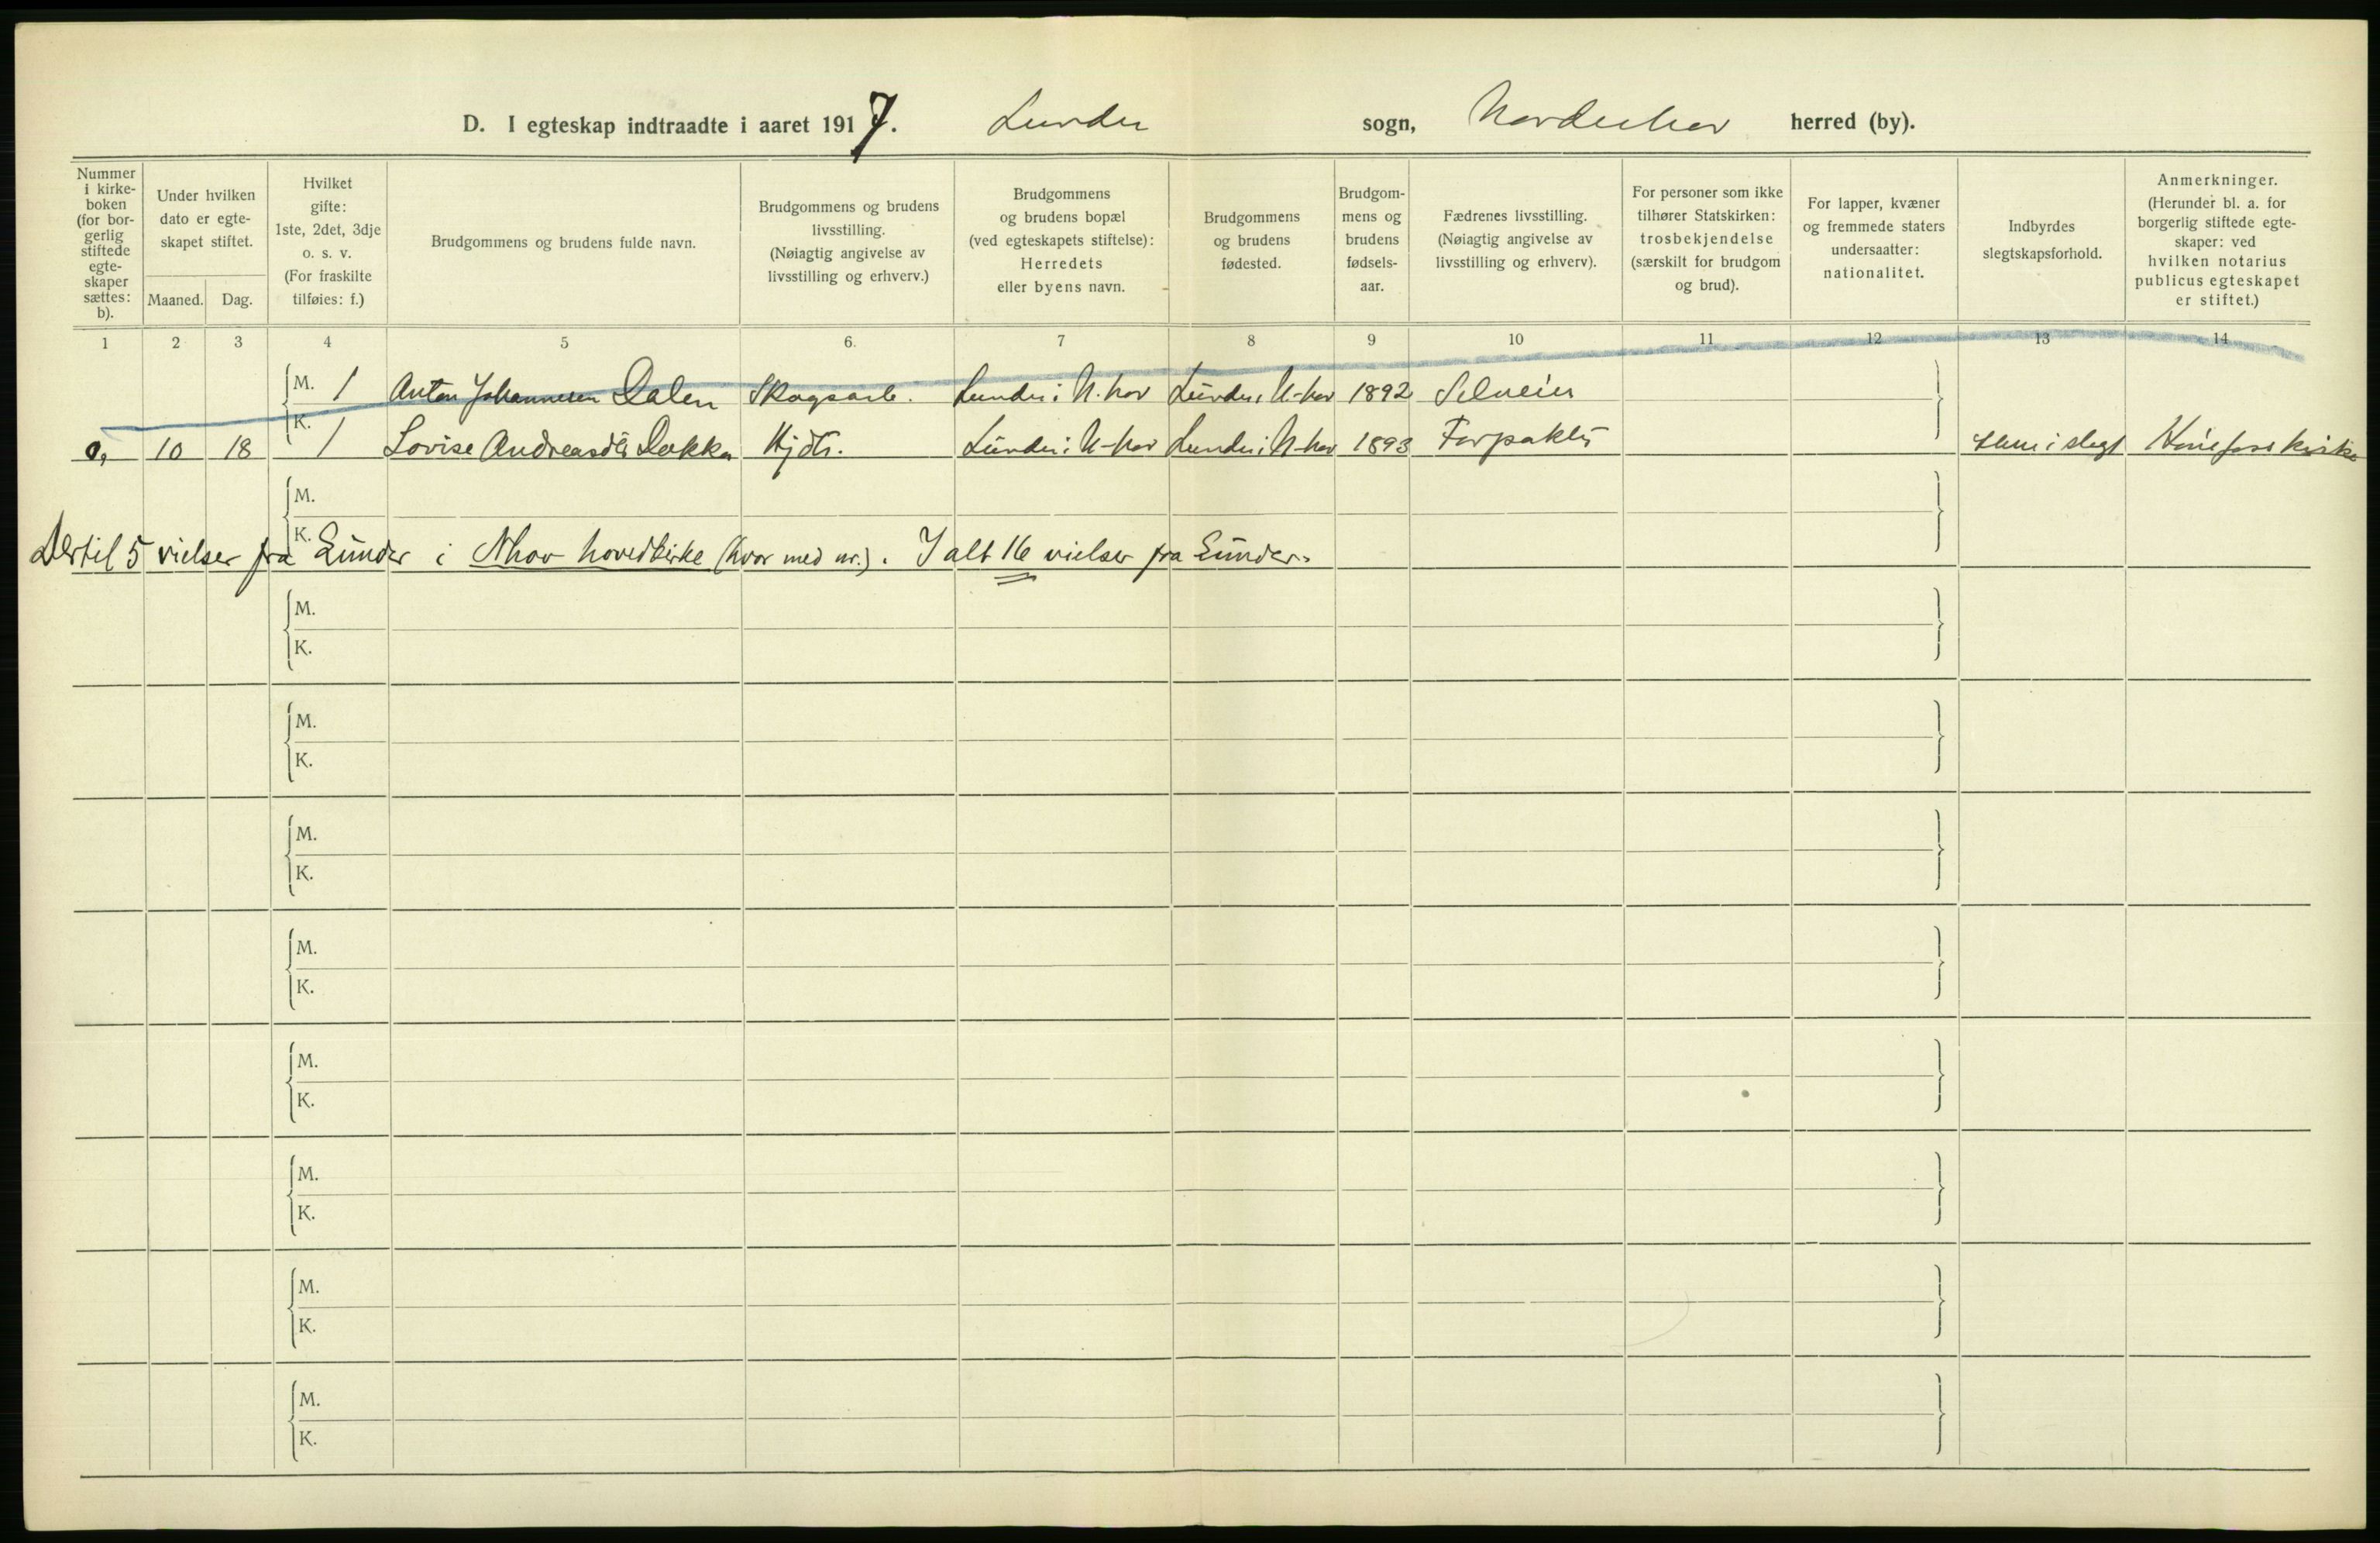 D. I egteskap indtraadte i aaret 1917. Lunder sogn, Norderhov herred (by).
Nummer i kirke-boken (for bor-gerlig stiftede egte-skaper sættes: b).
Under hvilken dato er egte-skapet stiftet.
Maaned. Dag.
Hvilket gifte: 1ste, 2det, 3dje o. s. v. (For fraskilte tilføies: f.)
Brudgommens og brudens fulde navn.
Brudgommens og brudens livsstilling. (Nøiagtig angivelse av livsstilling og erhverv.)
Brudgommens og brudens bopæl (ved egteskapets stiftelse): Herredets eller byens navn.
Brudgommens og brudens fødested.
Brudgom-mens og brudens fødsels-aar.
Fædrenes livsstilling. (Nøiagtig angivelse av livsstilling og erhverv).
For personer som ikke tilhører Statskirken: trosbekjendelse (særskilt for brudgom og brud).
For lapper, kvæner og fremmede staters undersaatter: nationalitet.
Indbyrdes slegtskapsforhold.
Anmerkninger. (Herunder bl. a. for borgerlig stiftede egte-skaper: ved hvilken notarius publicus egteskapet er stiftet.)
1 2 3 4 5 6. 7 8 9 10 11 12 13 14
M. 1 Anton Johannesen Dalen Skogsarb. Lunder i N.hov Lunder i N-hov 1892 Selveier
K.
0, 10 18 1 Lovise Andreasdtr Dokka Hjdtr. Lunder i N-hov Lunder i N-hov 1893 Forpakter i slegt Hønefoss kirke
M.
K.
Dertil 5 vielser fra Lunder i Nhov hovedkirke (hvor med nr.). I alt 16 vielser fra Lunder.
M.
K.
M.
K.
M.
K.
M.
K.
M.
K.
M.
K.
M.
K.
M.
K.